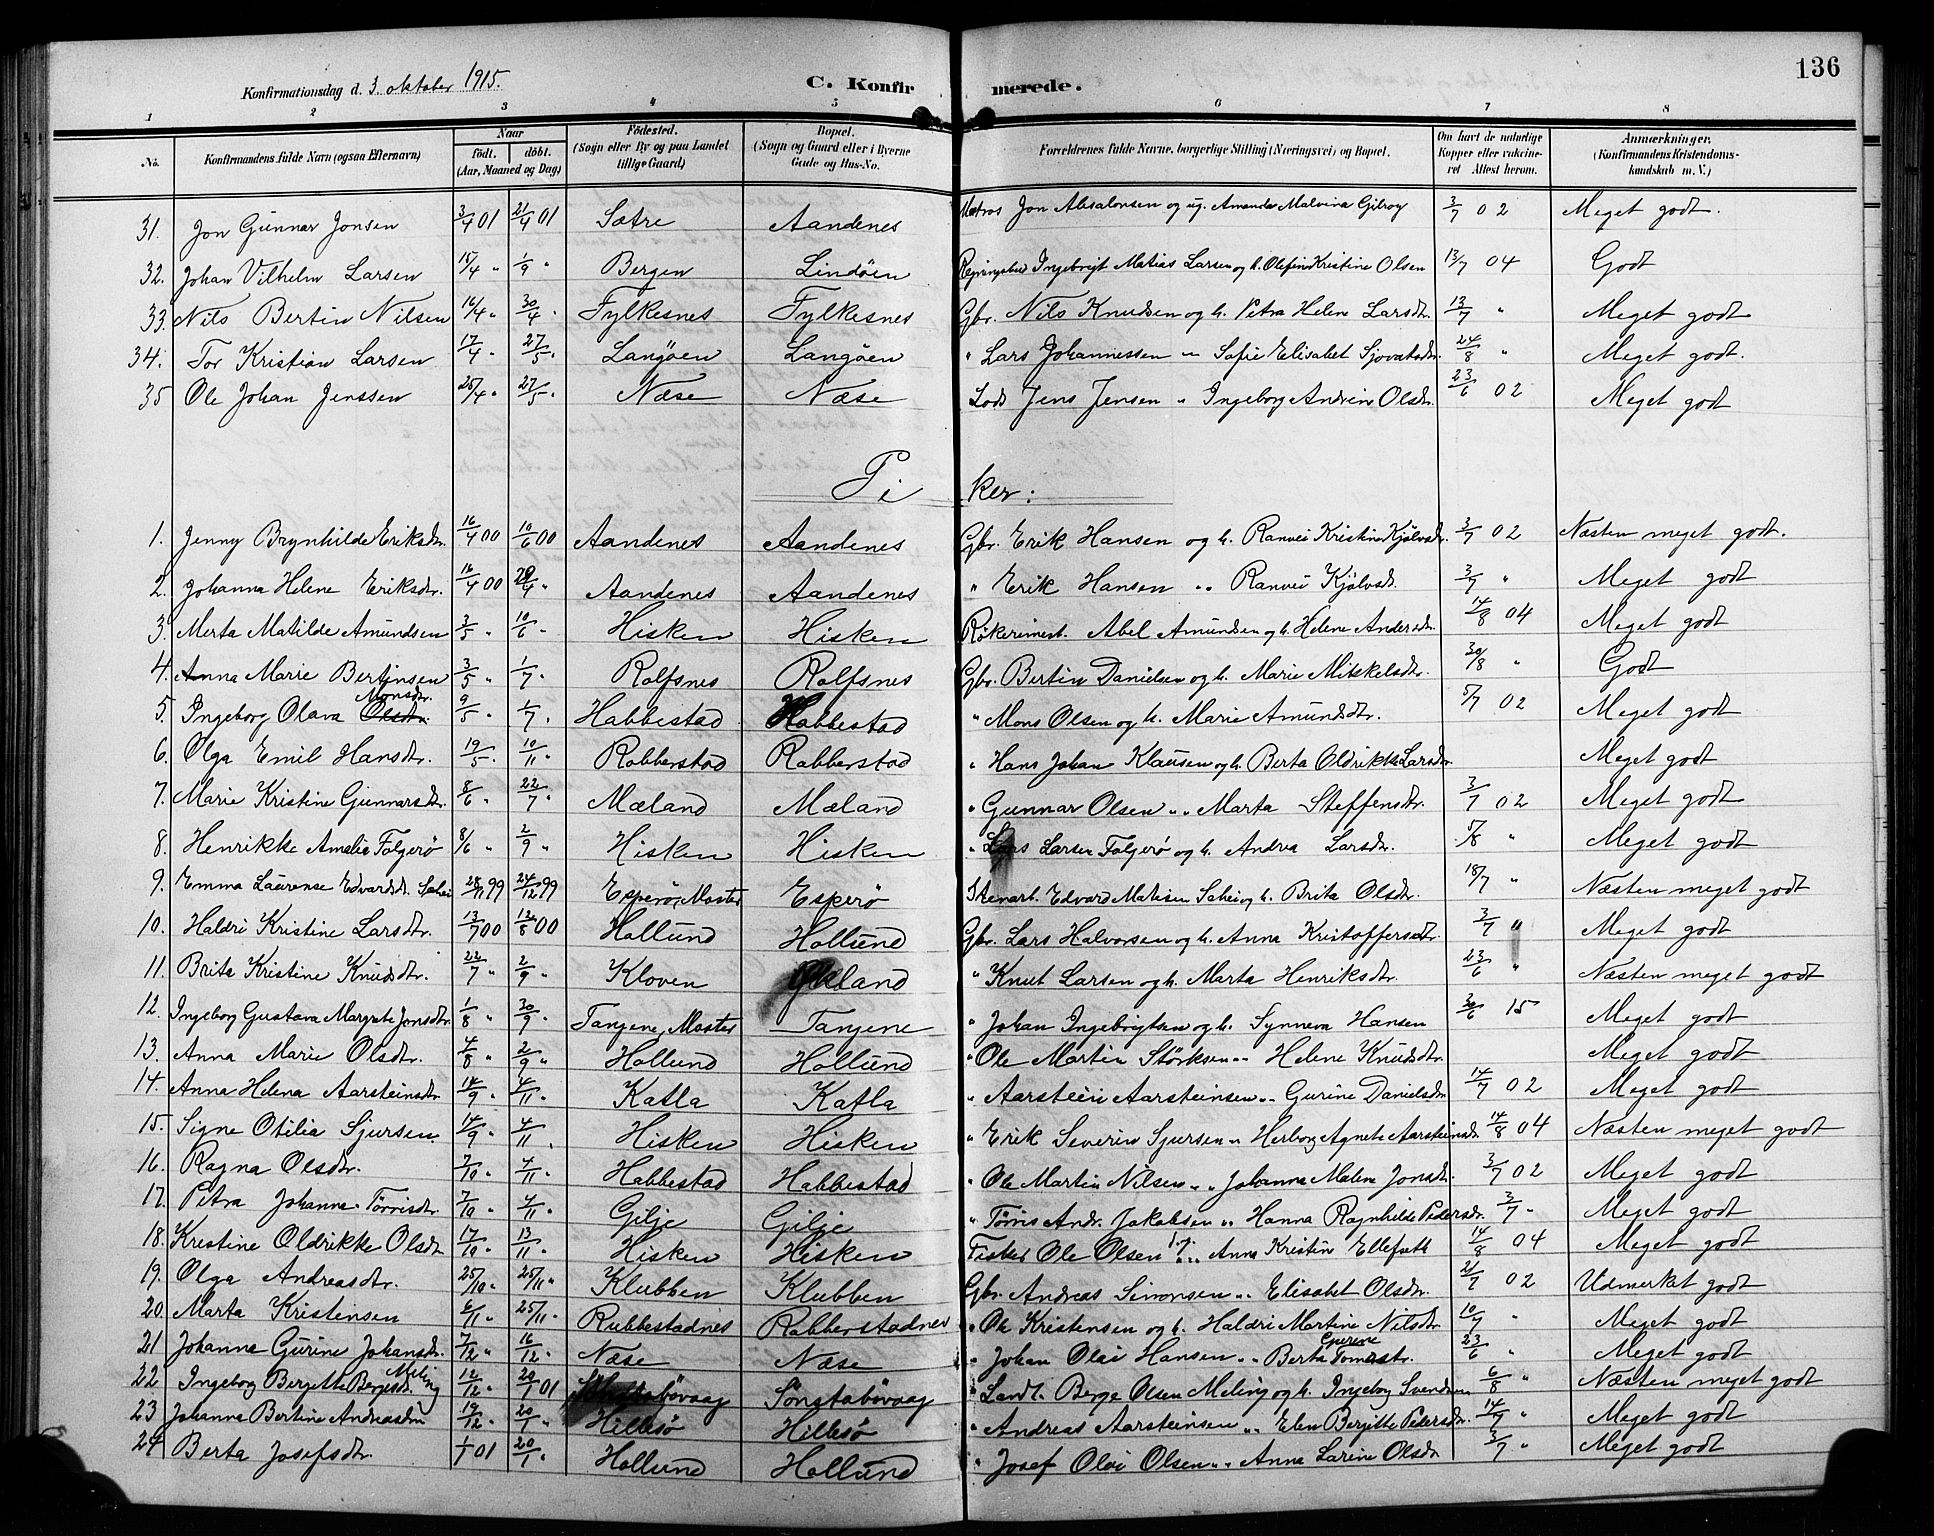 136
Konfirmationsdag d. 3. oktober 1915.
C. Konfirmerede.
1 2 3 4 5 6 7 8
No. Konfirmandens fulde Navn (ogsaa Efternavn) Naar født. døbt. (Aar, Maaned og Dag) Fødested. (Sogn eller By og paa Landet tillige Gaard) Bopæl. (Sogn og Gaard eller i Byerne Gade og Hus-No. Forældrenes fulde Navne, borgerlige Stilling (Næringsvei) og Bopæl. Om havt de naturlige Kopper eller vakcineret Attest herom. Anmærkninger, (Konfirmandens Kristendomskundskab m. V.)
31. Jon Gunnar Jonsen 3/4 01 21/4 01 Sætre Aandenes Matros Jon Absalonsen og ug. Amanda Malvina Gilroy 3/7 02 Meget godt.
32. Johan Vilhelm Larsen 15/4 " 1/9 " Bergen Lindöen Ingebrigt Matias Larsen og h. Olefin Kristine Olsen 13/7 04 Godt
33. Nils Bertin Nilsen 16/4 " 30/4 " Fylkesnes Fylkesnes Gbr. Nils Knudsen og h. Petra Helene Larsdtr. 13/7 " Meget godt
34. Tor Kristian Larsen 17/4 " 27/5 " Langöen Langöen " Lars Johannessen " Sofie Elisabet Sjovatsdtr. 24/8 " Meget godt.
35 Ole Johan Jenssen 25/4 " 27/5 " Næse Næse Lods Jens Jensen " Ingeborg Andrine Olsdtr. 23/6 02 Meget godt
Piker:
1. Jenny Brynhilde Eriksdtr. 16/4 00 10/6 00 Aandenes Aandenes Gbr. Erik Hansen og h. Ranvei Kristine Kjølvsdtr. 3/7 02 Næsten meget godt.
2. Johanna Helene Eriksdtr. 16/4 00 29/4 " Aandenes Aandenes " Erik Hansen " " Ranvei Kjølvsdtr. 3/7 " Meget godt
3. Merta Matilde Amundsen 3/5 " 10/6 " Hisken Hisken Abel Amundsen og h. Helene Andersdtr. 14/8 04 Meget godt
4. Anna Marie Bertinsen 3/5 " 1/7 " Rolfsnes Rolfsnes Gbr. Bertin Danielsen og h. Marie Mikkelsdtr. 30/8 " Godt
5. Ingeborg Olava Olsdtr. Monsdtr. 9/5 " 1/7 " Habbestad Habbestad " Mons Olsen og h. Marie Amundsdtr. 5/7 02 Meget godt
6. Olga Emil Hansdtr. 19/5 " 10/11 " Robberstad Rabberstad " Hans Johan Klausen og h. Berta Oldrikke Larsdtr. Meget godt
7. Marie Kristine Gunnarsdtr. 8/6 " 22/7 " Mæland Mæland " Gunnar Olsen " " Marta Steffensdtr. 3/7 02 Meget godt
8. Henrikke Amalie Folgerø 8/6 " 2/9 " Hisken Hisken " Lars Larsen Folgerø og h. Andrea Larsdtr. 5/8 " Meget godt
9. Emma Laurense Edvardsdt. 28/11 99 24/12 99 Esperö, Moster Esperö Stenarb. Edvard Matisen og h. Brita Olsdtr. 18/7 " Næsten meget godt
10. Haldri Kristine Larsdtr. 13/7 00 12/8 00 Hollund Hollund Gbr. Lars Halvorsen og h. Anna Kristoffersdtr. 3/7 " Meget godt
11. Brita Kristine Knudsdtr. 22/7 " 2/9 " Kloven Økland " Knut Larsen og h. Marta Henriksdtr. 23/6 " Næsten meget godt
12. Ingeborg Gustava Margrete Jonsdtr. 1/8 " 30/9 " Tangene, Moster Tangene " Johan Ingebrigtsen og h. Synneva Hansen 30/6 15 Meget godt
13. Anna Marie Olsdtr. 4/8 " 2/9 " Hollund Hollund " Ole Martin Størksen " " Helene Knudsdtr. Meget godt
14. Anna Helena Aarsteinsdtr 14/9 " 4/11 " Katla Katla " Aarstein Aarsteinsen " " Gurine Danielsdtr 14/7 02 Meget godt
15. Signe Otilia Sjursen 14/9 " 4/11 " Hisken Hisken " Erik Severin Sjursen " Herborg Agnete Aarsteinsdtr. 14/8 04 Næsten meget godt
16. Ragna Olsdtr. 7/10 " 4/11 " Habbestad Habbestad " Ole Martin Nilsen " " Johanna Malene Jonsdtr. 3/7 02 Meget godt
17. Petra Johanna Törrisdtr 7/10 " 4/11 " Gilje Gilje " Törris Andr. Jakobsen " Hanna Ragnhilde Pedersdtr. 3/7 " Meget godt
18. Kristine Oldrikke Olsdtr 17/10 " 13/11 " Hisken Hisken Fisker Ole Olsen " Anna Kristine Ellefsdtr 14/8 04 Meget godt
19. Olga Andreasdtr. 25/10 " 25/11 " Klubben Klubben Gbr. Andreas Simonsen " " Elisabet Olsdtr. 21/7 02 Udmerket godt
20. Marta Kristensen 6/11 " 25/11 " Rubbestadnes Robberstadnes " Ole Kristensen og h. Haldri Martine Nilsdtr 10/7 " Meget godt
21 Johanna Gurine Johansdtr. 7/12 " 16/12 " Næse Næse " Johan Olai Hansen " " Berta Gurine Tomasdtr. 23/6 " Meget godt
22 Ingeborg Bergette Bergesdt. Meling 12/12 " 20/1 01 Sönstabövaag " Landh. Berge Olsen Meling og h. Ingeborg Svendsen 6/8 " Næsten meget godt
23 Johanna Bertine Andreasdtr 19/12 " 20/1 " Hillesö Hillesö " Andreas Aarsteinsen " " Elen Bergitte Pedersdtr. 14/7 " Meget godt
24 Berta Josefsdtr. 1/1 01 20/1 " Hollund Hollund " Josef Olai Olsen " " Anna Larine Olsdtr 3/7 " Meget godt